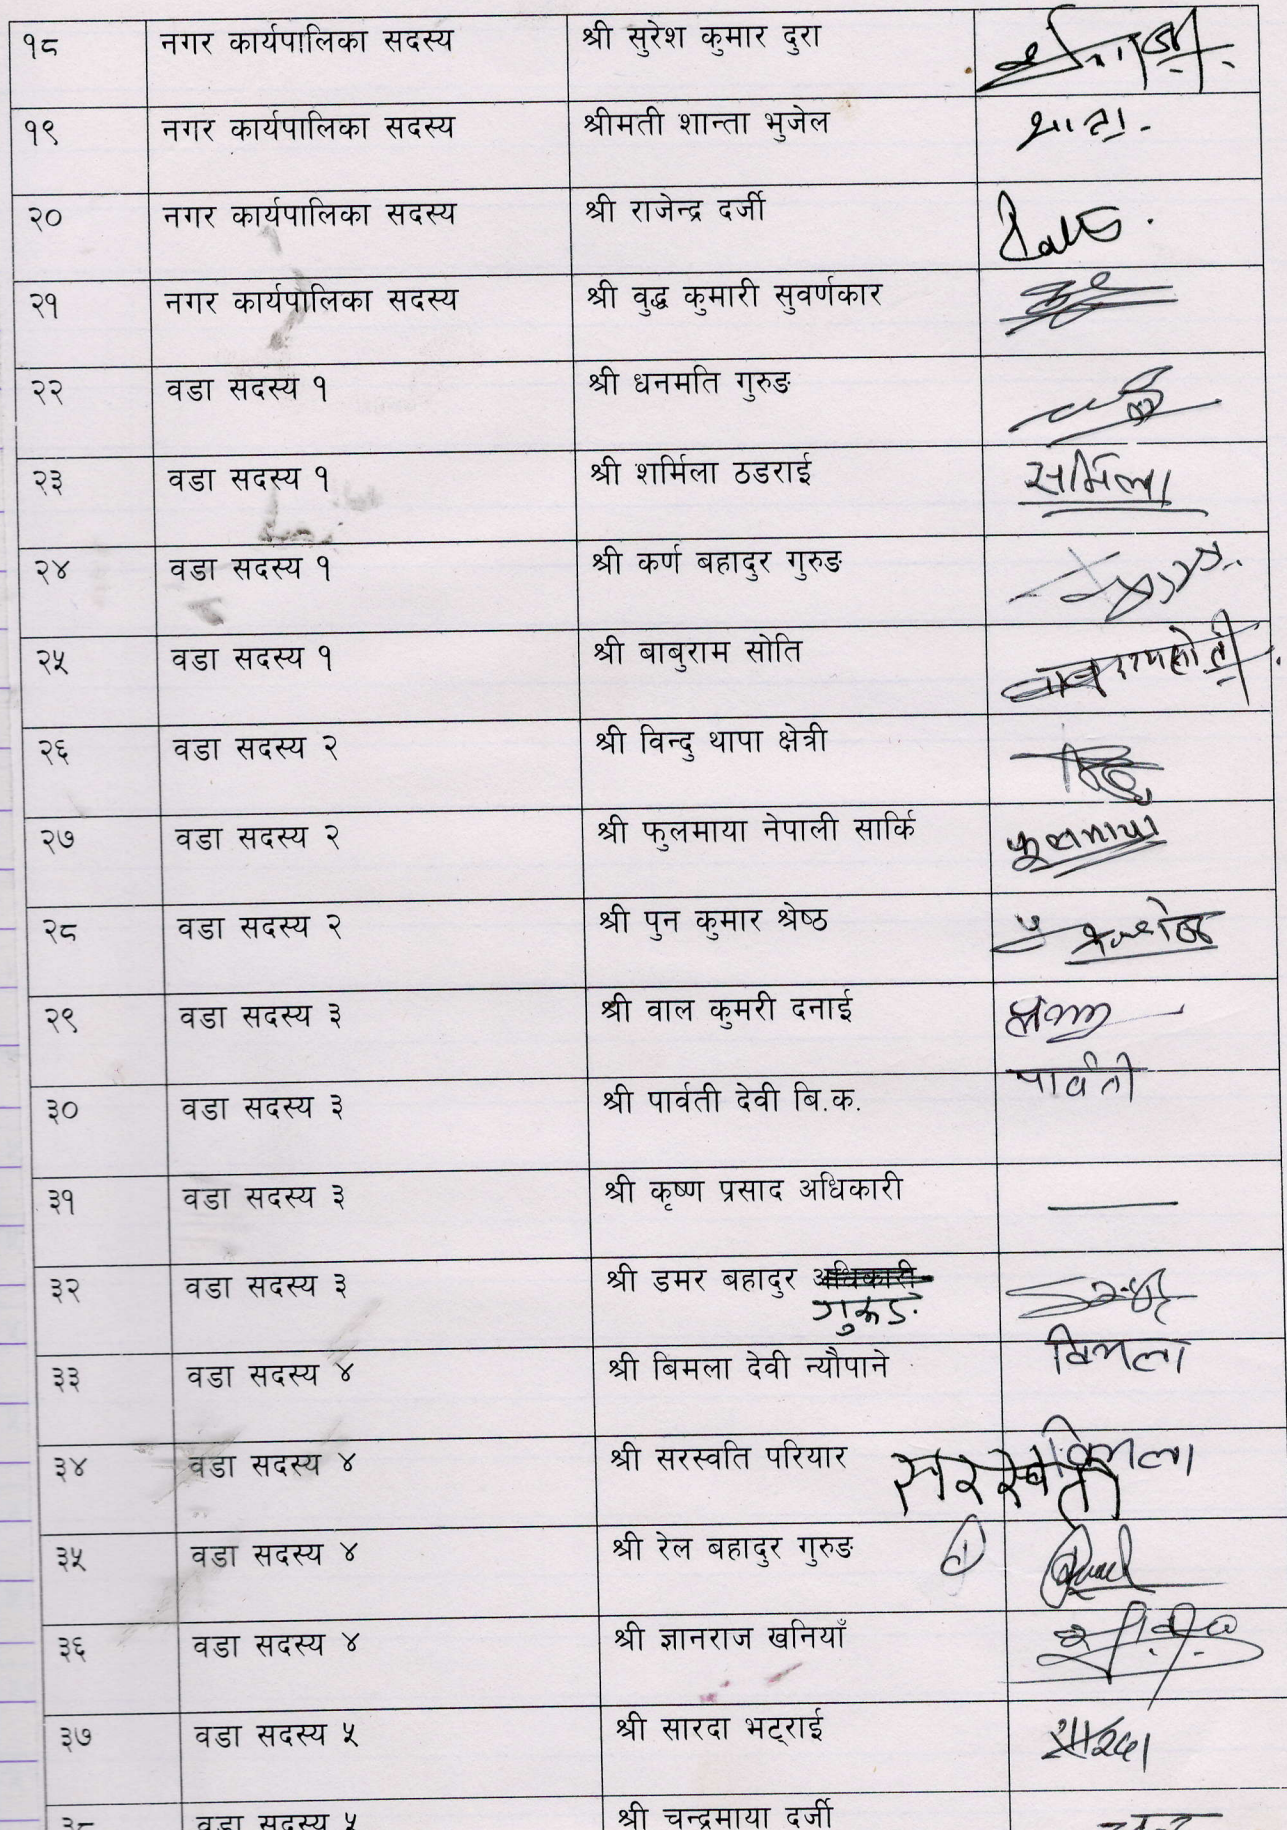 १८ नगर कार्यपालिका सदस्य श्री सुरेश कुमार दुरा
१९ नगर कार्यपालिका सदस्य श्रीमती शान्ता भुजेल
२० नगर कार्यपालिका सदस्य श्री राजेन्द्र दर्जी
२१ नगर कार्यपालिका सदस्य श्री वुद्ध कुमारी सुवर्णकार
२२ वडा सदस्य १ श्री धनमति गुरुङ
२३ वडा सदस्य १ श्री शर्मिला ठडराई सर्मिला
२४ वडा सदस्य १ श्री कर्ण बहादुर गुरुङ
२५ वडा सदस्य १ श्री बाबुराम सोति
२६ वडा सदस्य २ श्री विन्दु थापा क्षेत्री
२७ वडा सदस्य २ श्री फुलमाया नेपाली सार्कि फूलमाया
२८ वडा सदस्य २ श्री पुन कुमार श्रेष्ठ
२९ वडा सदस्य ३ श्री वाल कुमरी दनाई
३० वडा सदस्य ३ श्री पार्वती देवी बि.क. पार्वती
३१ वडा सदस्य ३ श्री कृष्ण प्रसाद अधिकारी
३२ वडा सदस्य ३ श्री डमर बहादुर अधिकारी
गुरुङ
३३ वडा सदस्य ४ श्री बिमला देवी न्यौपाने विमला
३४ वडा सदस्य ४ श्री सरस्वति परियार सरस्वती विमला
३५ वडा सदस्य ४ श्री रेल बहादुर गुरुङ
३६ वडा सदस्य ४ श्री ज्ञानराज खनियाँ
३७ वडा सदस्य ५ श्री सारदा भट्राई सारदा
३८ वडा सदस्य ५ श्री चन्द्रमाया दर्जी